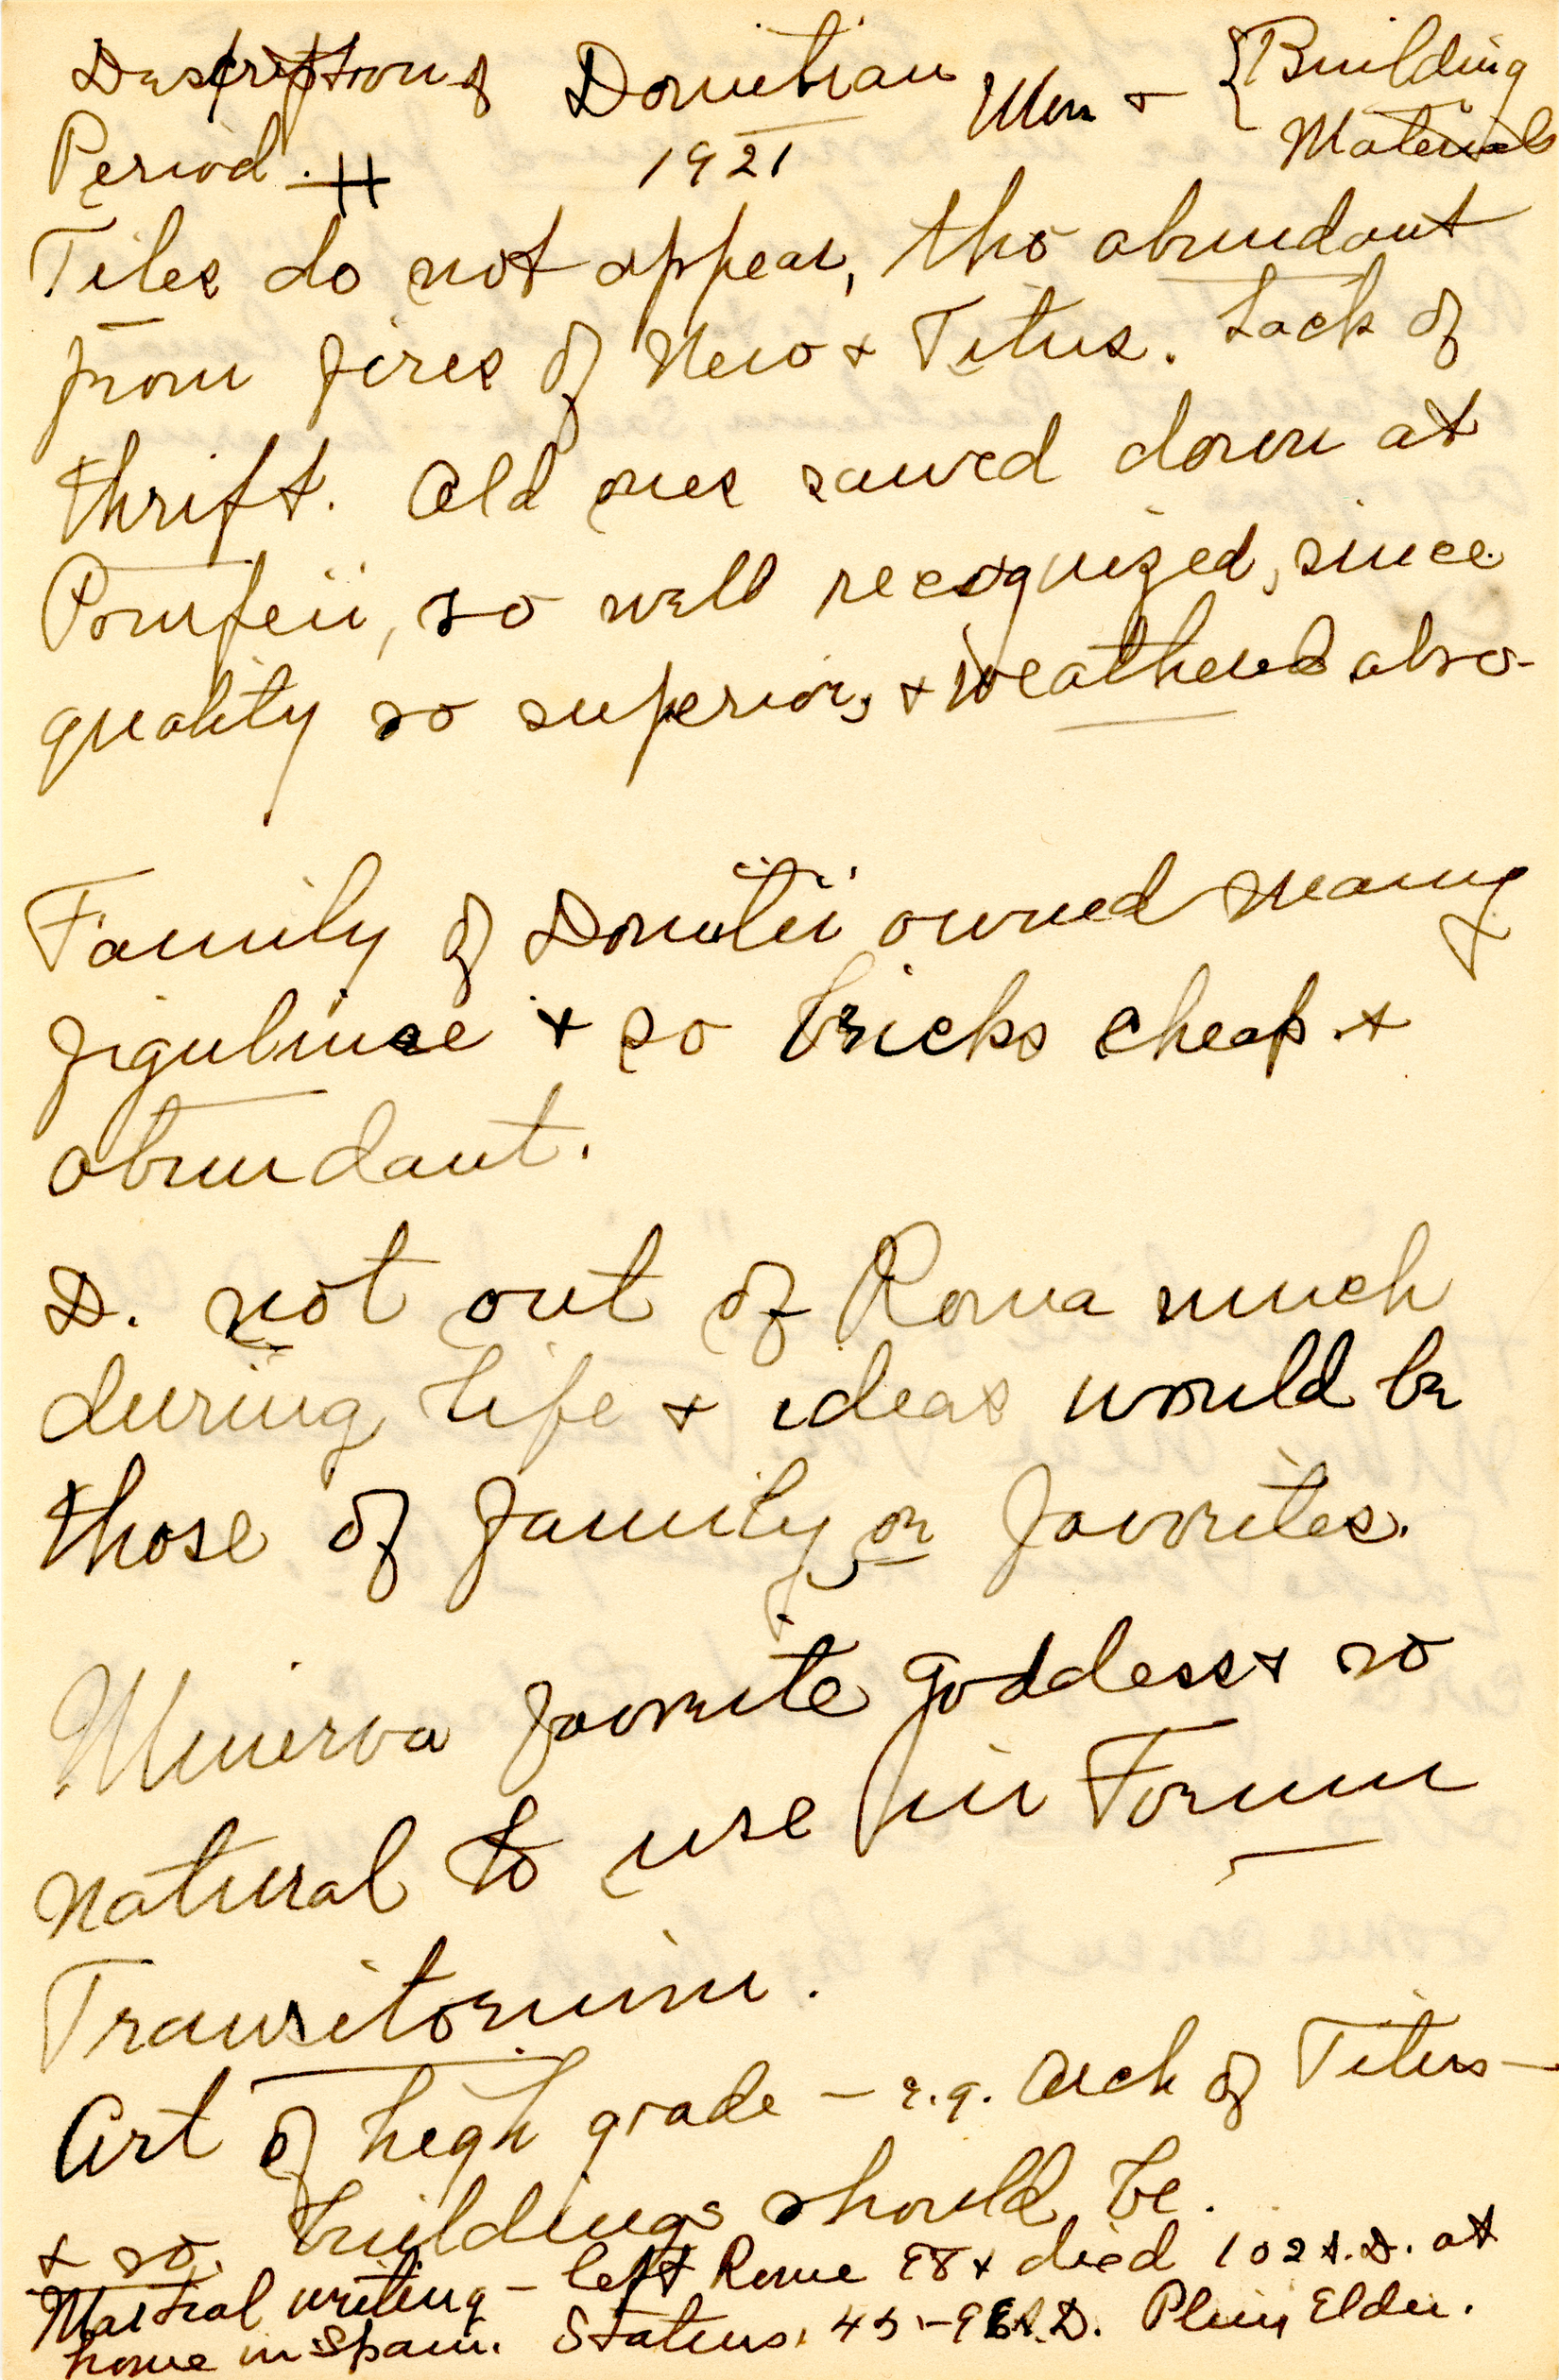 Description of Domitian Men + { Building
Period. H 1921 Materials
Tiles do not appear, tho abundant
from fires of Nero + Titus. Lack of
thrift. Old ones sawed down at
Pompeii, so well recognized, since
quality so superior, + weathered also.
Family of Domitii owned many
figulinae + so bricks cheap +
abundant.
D. not out of Roma much
during life + ideas would be
those of family or favorites.
Minerva favorite goddess + so
natural to use in Forum
Transitorium.
Art of high grade — e.g. Arch of Titus —
+ so buildings should be.
Martial writing - left Rome 98 + died 102 A.D. at
home in Spain. Statius, 45-96 A.D. Pliny Elder.